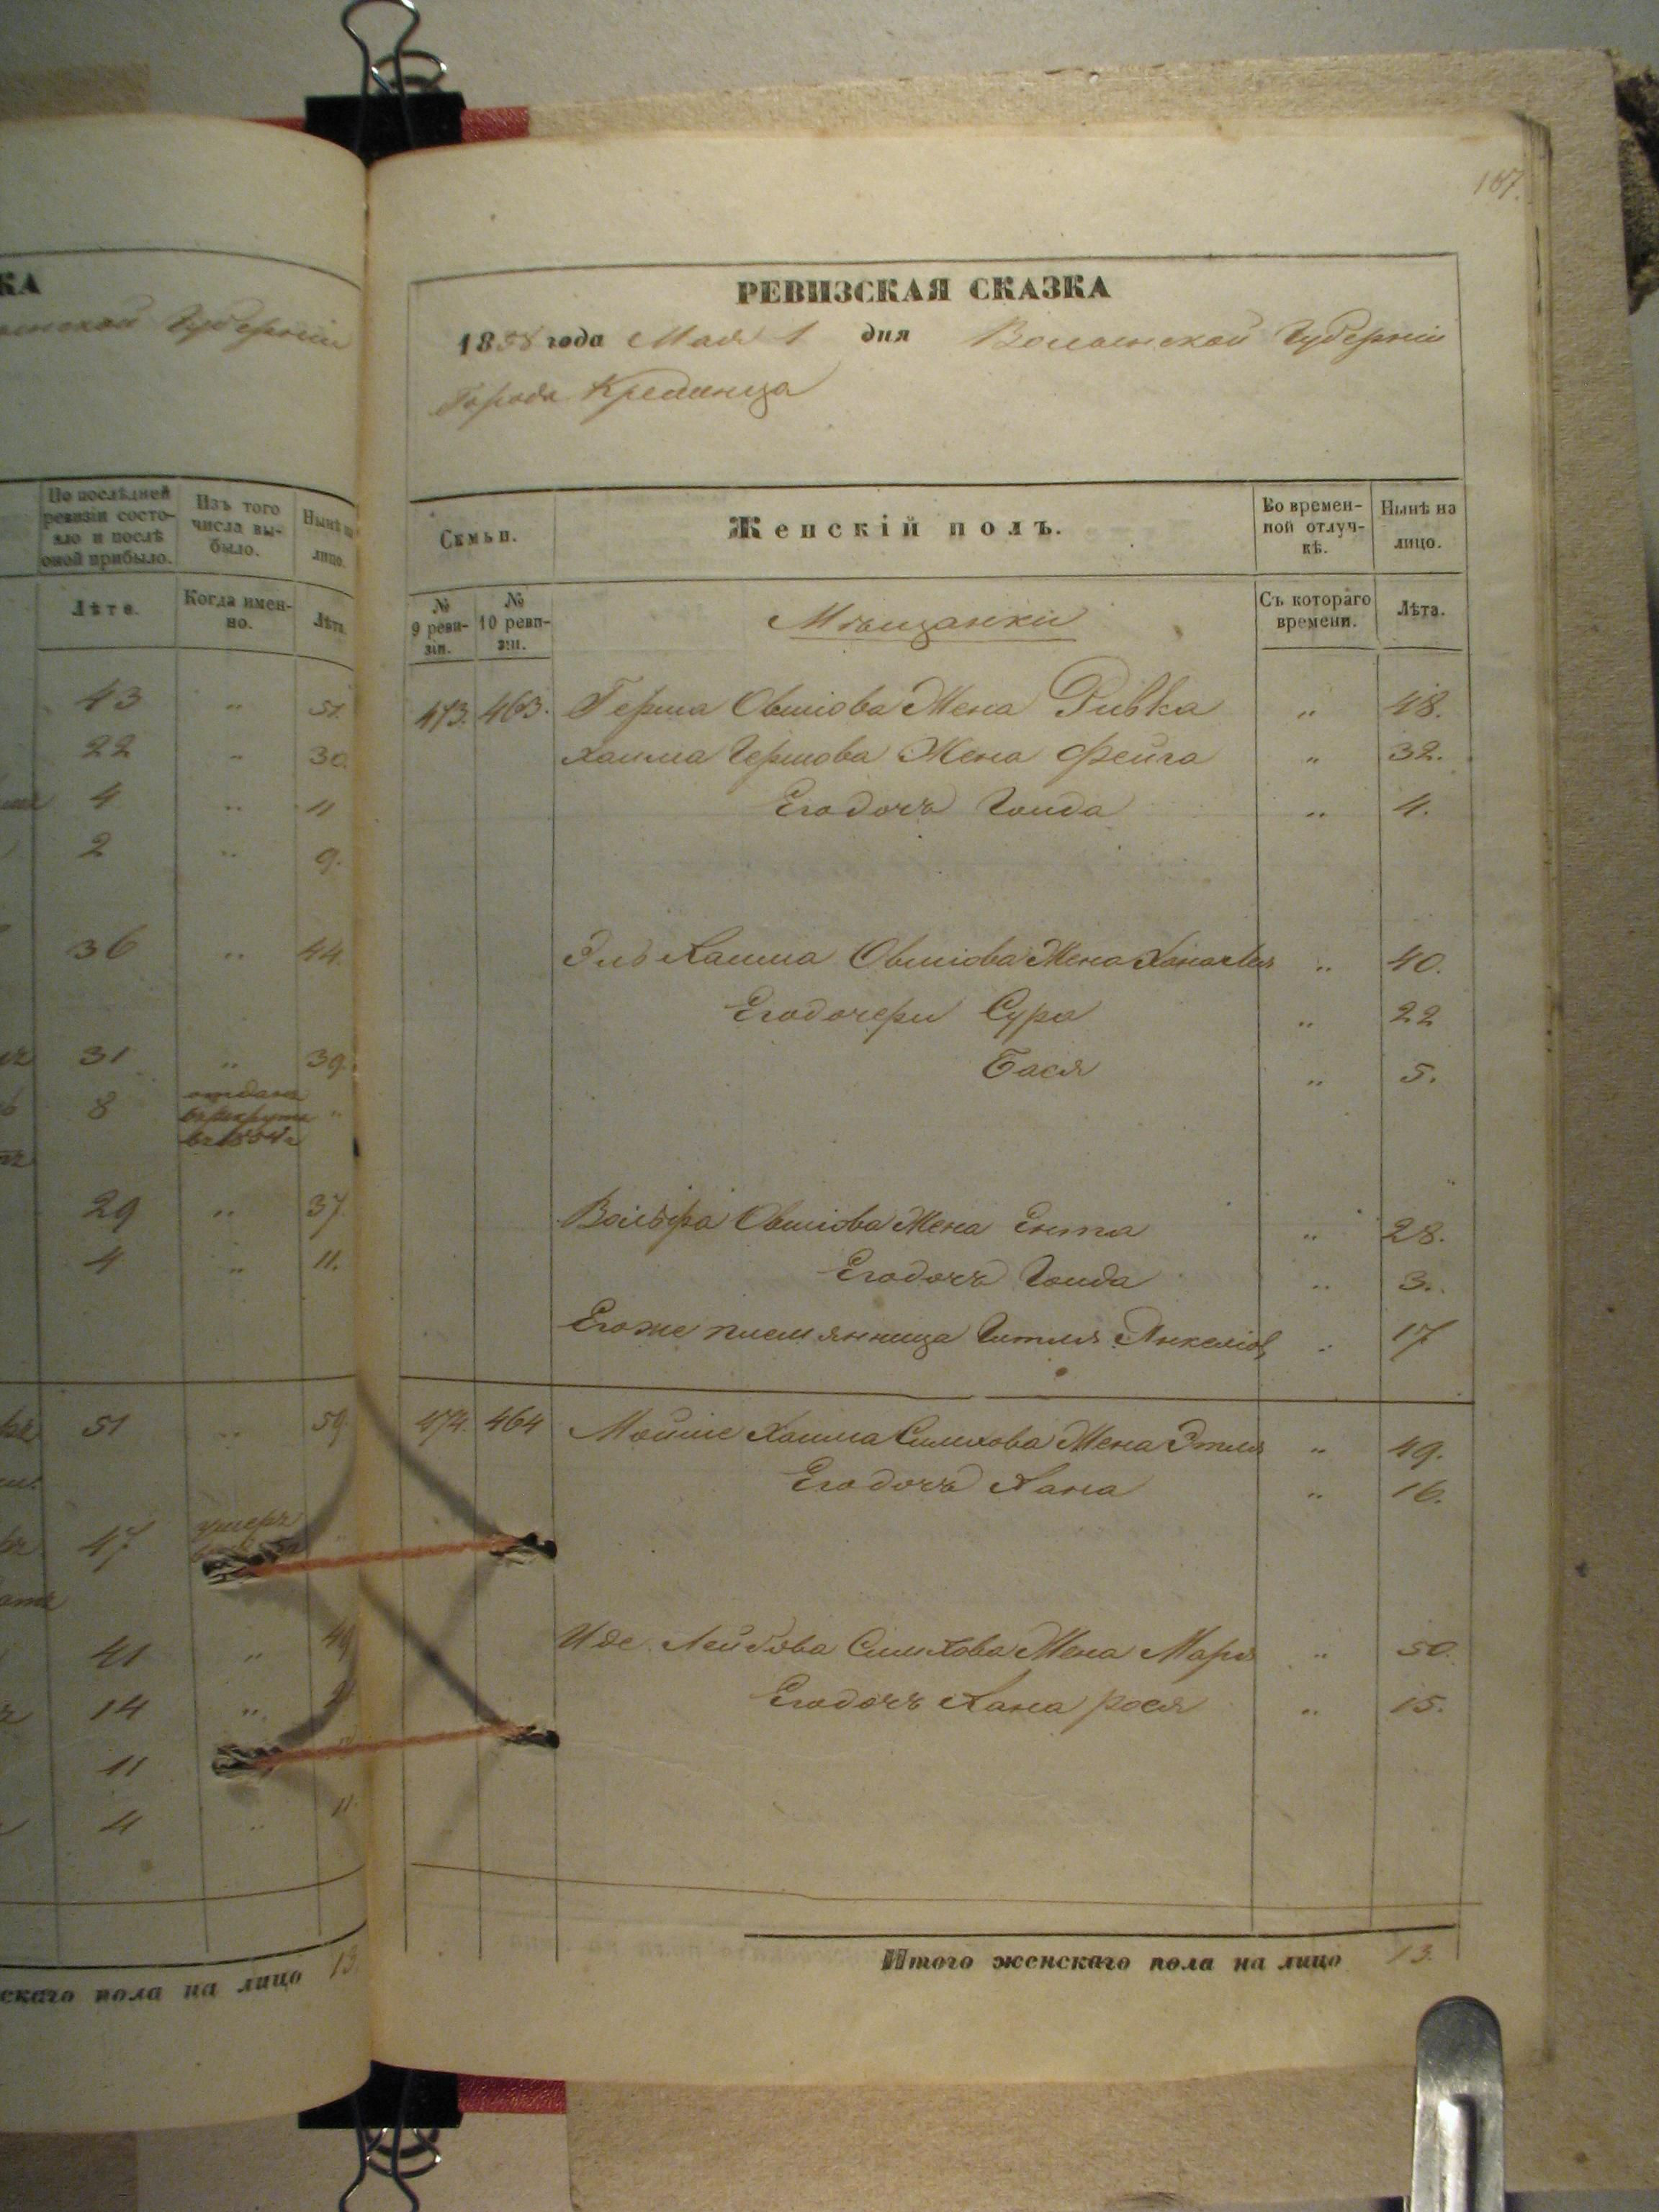 187.
КА
Губерніи
РЕВИЗСКАЯ СКАЗКА
1858 года Мая 1 дня Волынской Губерніи
Города Кременца
По послѣдней ревизіи состояло и послѣ оной прибыло.
Изъ того числа выбыло.
Нынѣ на лицо.
Лѣта.
Когда именно.
Лѣта
Семьи.
Женскій полъ.
Во временной отлучкѣ.
Нынѣ на лицо.
№ 9 ревизіи.
№ 10 ревизіи.
Мѣщанки
Съ котораго времени.
Лѣта.
43 " 51.
22 " 30.
4 " 11
2 " 9.
36 " 44.
31 " 39.
8 отданъ въ рекруты въ 1854 г "
29 " 37
4 " 11.
51 " 59.
47 умеръ
41 "
14 "
11
4 " 11.
скаго пола на лицо 13.
473. 463. Герша Овшіова Жена Ривка " 48.
Хаима Гершова Жена Фейга " 32.
Его дочь Голда " 4.
Эль Хаима Овшіова Жена " 40.
Его дочери Сура " 22
Бася " 5.
Вольфа Овшіова Жена Ента " 28.
Его дочь Голда " 3.
Его же племянница Гитля Янкеліов " 17
474. 464 Мойше Хаима Симхова Жена Этля " 49.
Его дочь Хана " 16.
Иде Лейбова Симхова Жена Маря " 50.
Его дочь Хана рося " 15.
Итого женскаго пола на лицо 13.